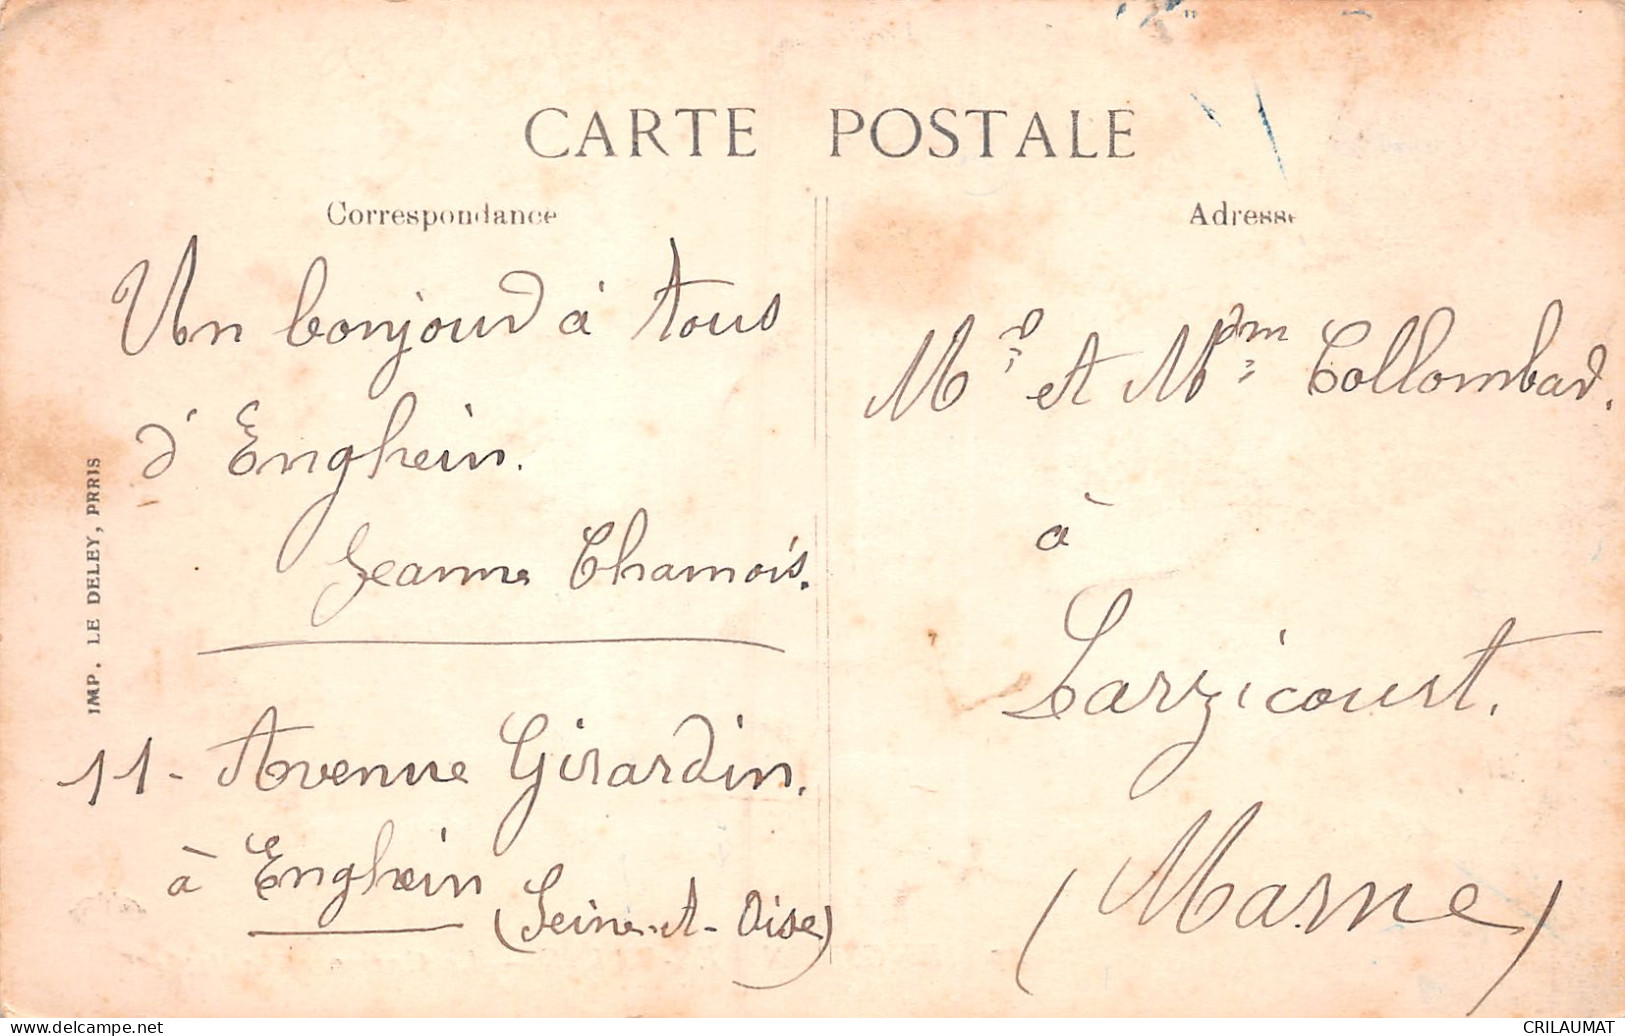 CARTE POSTALE
Correspondance
Un bonjour à tous
d'Enghein.
Jeanne Chamois.
11 - Avenue Girardin.
à Enghein (Seine-et-Oise)
IMP. LE DELEY, PARIS
Adresse
Mr et Mme Collombar.
à
Larzicourt.
(Marne)
CRILAUMAT